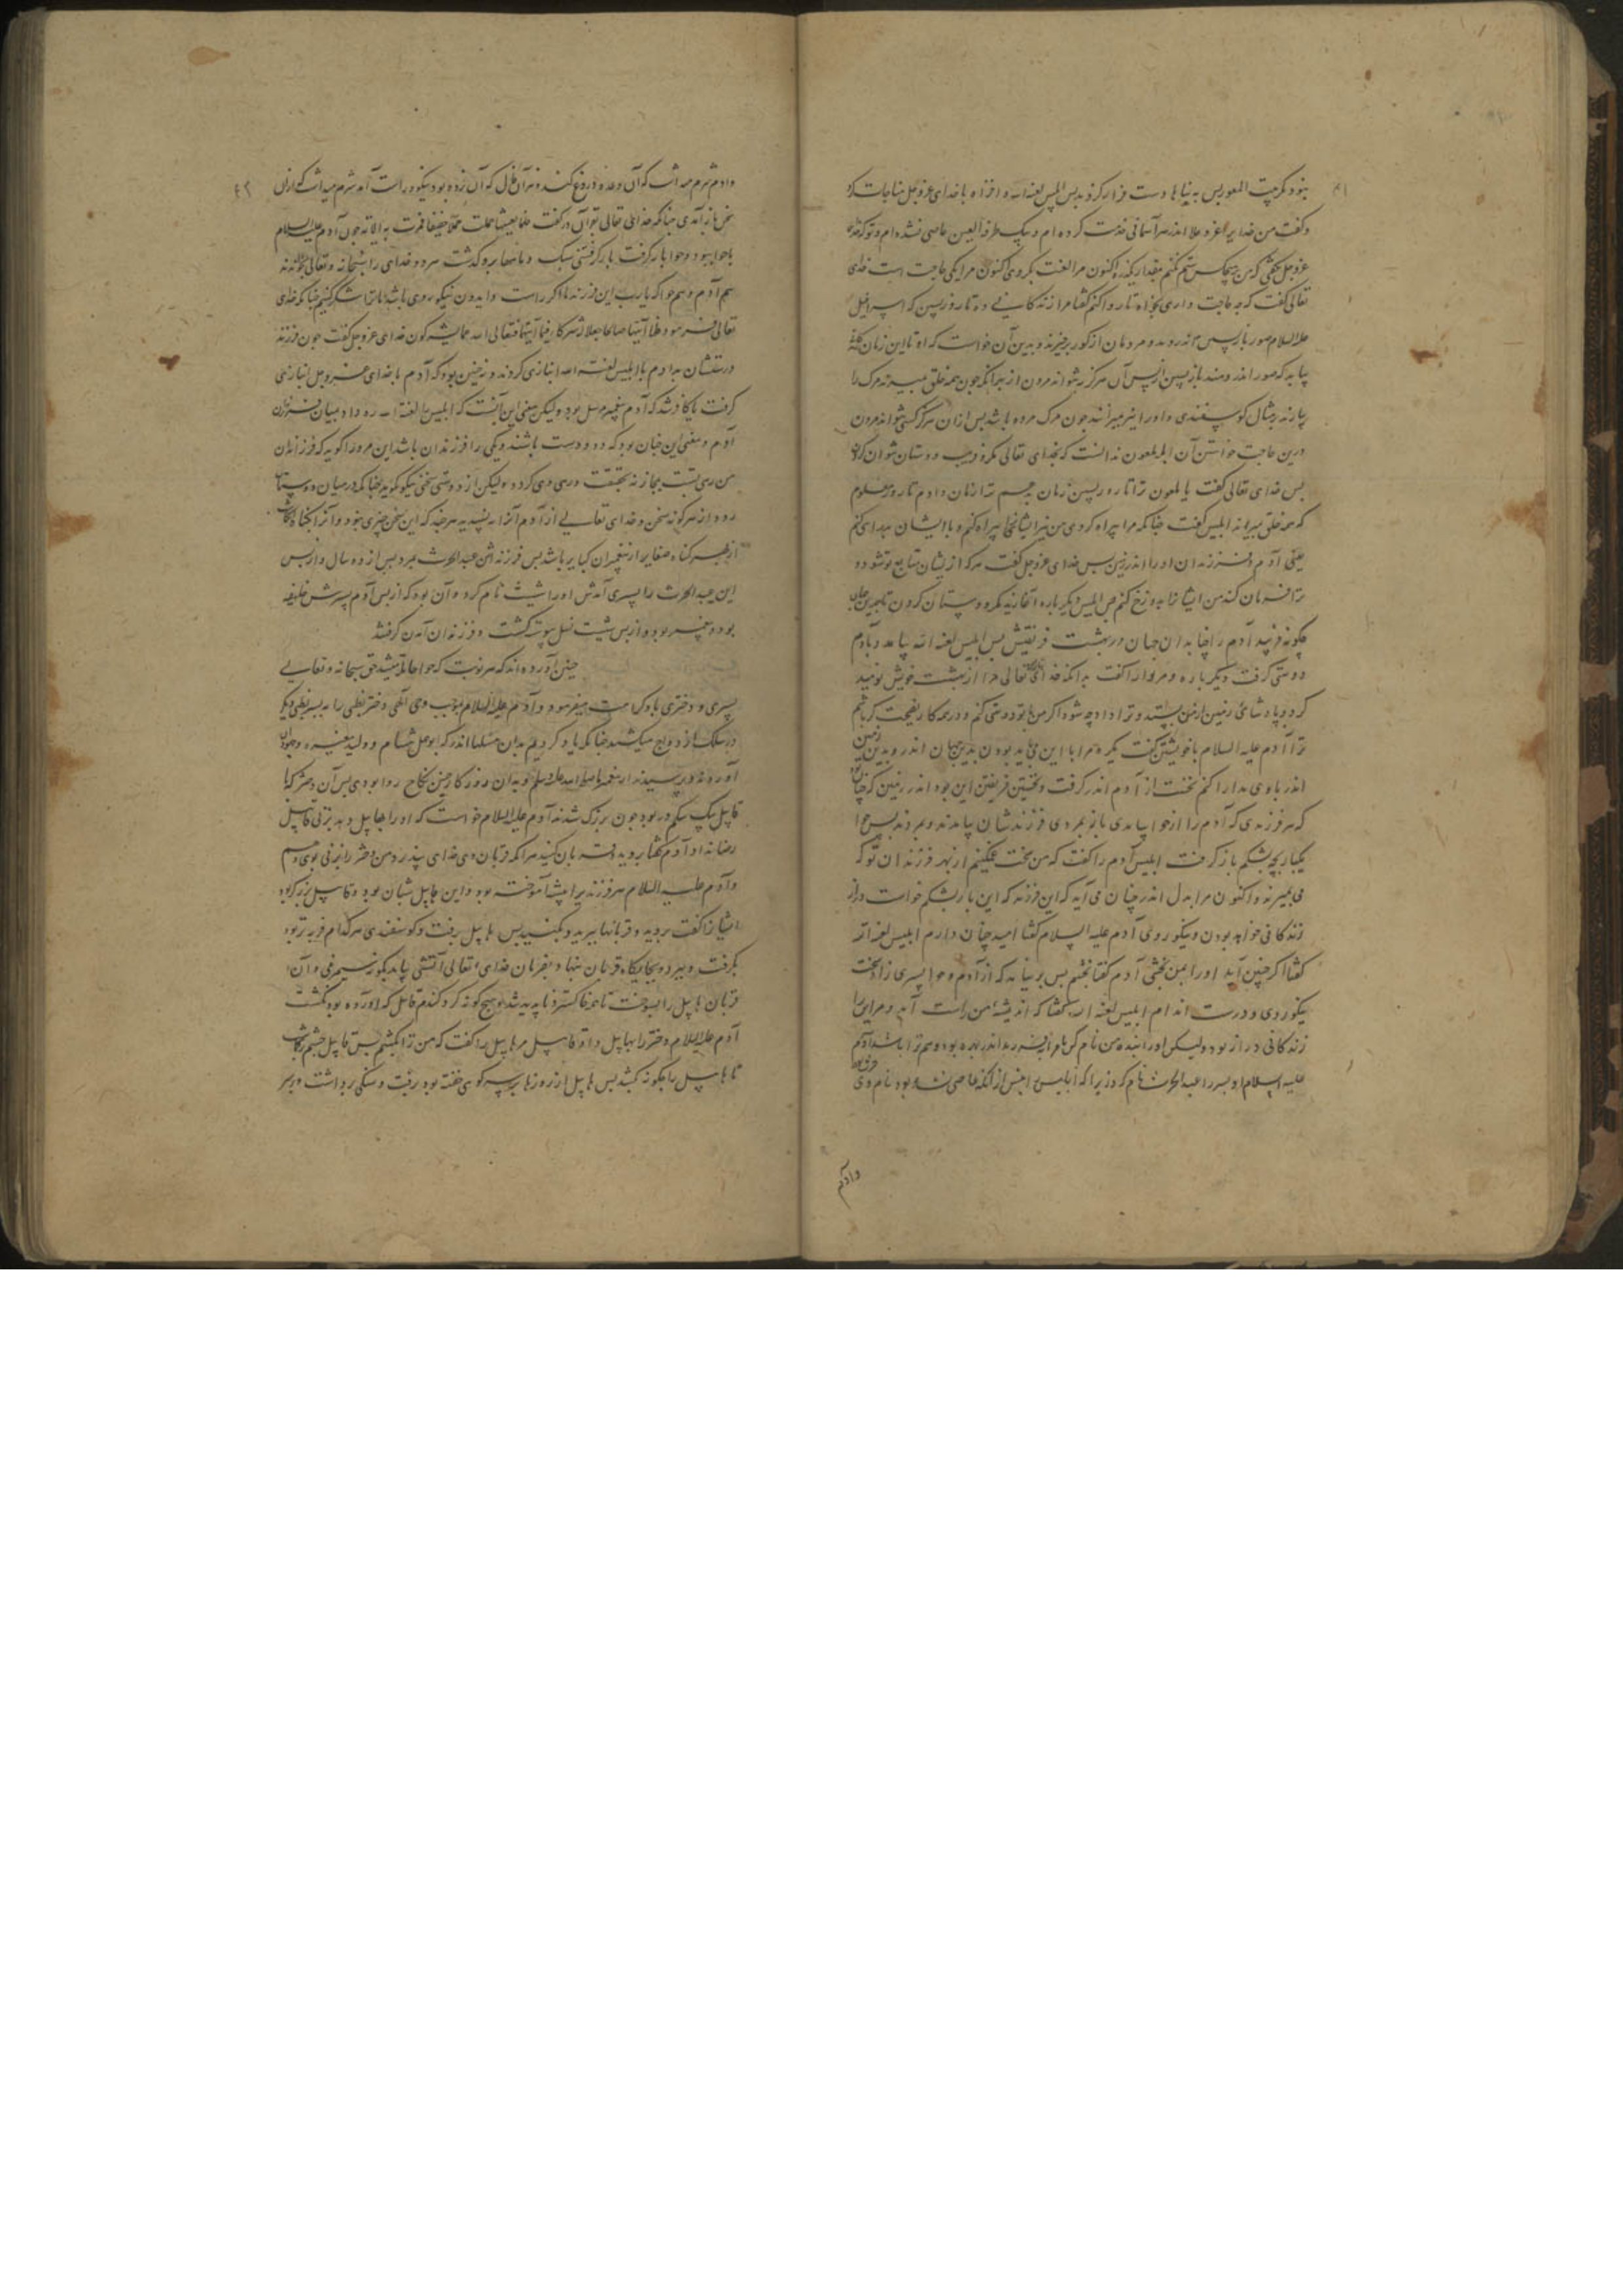 بنود مکر بیت المعمور پس به بنیاها دست فراز کردند پس ابلیس لعنه الله و اخزاه با خدای عزوجل مناجات کرد
وکفت من خدایرا عزوعلا اندر هر آسمانی خدمت کرده ام و یک طرفة العین عاصی نشده ام و توکه خدای
عزوجل بکفتی که من بر هیچکس ستم نکنم مقدار یکذره اکنون مرا لعنت بکردی اکنون مرا یکی حاجت است خدای
تعالی کفت که چه حاجت داری بخواه تا روا کنم کفتا مرا زندکانی ده تا روز پسین که اسرافیل
علیه السلام صور باز پسین اندر دمد و مردمان از کور برخیزند و بدین آن خواست که او تا این زمان
بیاید که صور اندر دمند باز پسین از پس آن هرکز نتواند مردن از بهر آنکه چون همه خلق بمیرند مرک را
بیارند بر مثال کوسفندی و او را نیز بمیرانند چون مرک مرده باشد پس ازان هرکز کسی نتواند مردن
درین حاجت خواستن آن ابله ملعون ندانست که بخدای تعالی مکر و فریب و دستان نتوان کردن
پس خدای تعالی کفت یا ملعون ترا تا روز پسین زمان ندهم ترا زمان دادم تا روز معلوم
که همه خلق بمیرند ابلیس کفت چنانکه مرا بیراه کردی من نیز ایشانرا بیراه کنم و با ایشان بدرای کنم
یعنی آدم و فرزندان او را اندر زمین پس خدای عزوجل کفت هرکه از ایشان متابع تو شود و
ترا فرمان کند من ایشانرا بدوزخ کنم پس ابلیس دیکر باره آغازید مکر و دستان کردن تا بجهد
چکونه فریبد آدم را چنانکه بدان جهان در بهشت فریفتیش پس ابلیس لعنه الله بیامد و با آدم
دوستی کرفت دیکر باره و مر او را کفت بدانکه خدای تعالی مرا از بهشت خویش نومید
کرد و پادشاهی زمین از من بستد و ترا داد چه شود اکر من با تو دوستی کنم و در همه کار نصیحت کر باشم
ترا آدم علیه السلام با خویشتن کفت که مرا با این می باید بودن بدین جهان اندر و بدین زمین
اندر با وی مدارا کنم نخست از آدم اندر کرفت و نخستین فریفتن این بود اندر زمین که چنان بود
که هر فرزندی که آدم را از حوا بیامدی نماندی بمردی فرزندشان بیامدند و بمردند پس حوا
یکبار بچه بشکم باز کرفت ابلیس آدم را کفت که من سخت غمکینم از بهر فرزندان تو که
می بمیرند و اکنون مرا بدل اندر چنان می آید که این فرزند که این بار بشکم حواست دراز
زندکانی خواهد بودن و نیکو روی آدم علیه السلام کفتا امید چنان دارم ابلیس لعنه الله
کفتا اکر چنین آید او را بمن بخشی آدم کفتا بخشم پس بر نیامد که از آدم و حوا پسری زاد سخت
نیکو روی و درست اندام ابلیس لعنه الله کفتا که اندیشهٔ من راست آمد و مر این را
زندکانی دراز بود ولیکن او را بنده من نام کن تا مرا نیز بدو اندر بهره بود و هم ترا باشد آدم
علیه السلام او پسر را عبد الحرث نام کرد زیرا که ابلیس پیش از آنکه عاصی شده بود نام وی حرث بود
وآدم
وآدم شرم میداشت که آن وعده دروغ کند و نیز آن فال که آن زده بود نیکو و راست آمد شرم میداشت که ازان
سخن باز آمدی چنانکه خدای تعالی بقرآن در کفت فلما تغشیها حملت حملا خفیفا فمرت به الایة چون آدم علیه السلام
با حوا ببود و حوا بار کرفت بار کرفتنی سبک و ماهها برو کذشت هر دو خدای را سبحانه و تعالی بخواندند
هم آدم و هم حوا که یارب این فرزند ما اکر راست و ایدون نیکو روی باشد ما ترا شکر کنیم چنانکه خدای
تعالی فرمود فلما آتیهما صالحا جعلا له شرکاء فیما آتیهما فتعالی الله عما یشرکون خدای عزوجل کفت چون فرزند
درستشان بدادم با ابلیس لعنه الله انبازی کردند و نه چنین بود که آدم با خدای عزوجل انبازی
کرفت یا کافر شد که آدم پیغمبر مرسل بود ولیکن معنی این آنست که ابلیس را لعنة الله ره داد بمیان فرزندان
آدم و معنی این چنان بود که دو دوست باشند و یکی را فرزندان باشد این مر او را کوید که فرزندان
من رهی تست بمجاز نه بحقیقت و رهی وی کردد ولیکن از دوستی سخنی نیکو کوید چنانکه در میان دوستان
رود از هرکونه سخن و خدای تعالی از آدم آنرا نپسندید هرچند که این سخن چیزی نبود و آنرا بکناه
از بهر کناه صغایر از پیغمبران کبایر باشد پس فرزندش عبد الحرث بمرد پس از دو سال و از پس
این عبد الحرث را پسری آمدش او را شیث نام کرد و آن بود که از پس آدم پسرش خلیفه
بود و پیغمبر بود و از پس شیث نسل پیوسته کشت و فرزندان آمدن کرفتند
چنین آورده اند که هر نوبت که حوا حامله میشد حق سبحانه و تعالی
پسری و دختری با و کرامت میفرمود و آدم علیه السلام بموجب وحی الهی دختر بطنی را به پسر بطنی دیکر
در سلک ازدواج میکشید چنانکه یاد کردیم بدان مسئلها اندر که ابوجهل هشام و ولید مغیره و جهودان
آوردند و پرسیدند از پیغمبر ما صلی الله علیه وسلم و بدان روزکار چنین نکاح روا بودی پس آن دختر که با
قابیل بیک شکم در بود چون بزرک شدند آدم علیه السلام خواست که او را بهابیل دهد بزنی قابیل
رضا نداد آدم کفتا بروید قربان کنید هر آنکه قربان وی خدای بپذیرد من دختر را بزنی بوی دهم
و آدم علیه السلام هر فرزندیرا پیشه‌ای آموخته بود و این هابیل شبان بود و قابیل برزکر بود
ایشانرا کفت بروید و قربانها ببرید و بکنید پس هابیل برفت و کوسفندی هرکدام فربه تر بود
بکرفت و ببرد و بجایکاه قربان بنهاد و بفرمان خدای تعالی آتشی بیامد
قربان هابیل را بسوخت تا همه خاکستر و ناپدید شد و هیچ کونه کرد کندم قابیل که آورده بود نکشت
آدم علیه السلام دختر را بهابیل داد قابیل مر هابیل را کفت که من ترا بکشم پس قابیل چشم نکاه داشت
تا هابیل را چکونه کشد پس هابیل از روزها بر سر کوهی خفته بود برفت و سنکی برداشت و بر سر